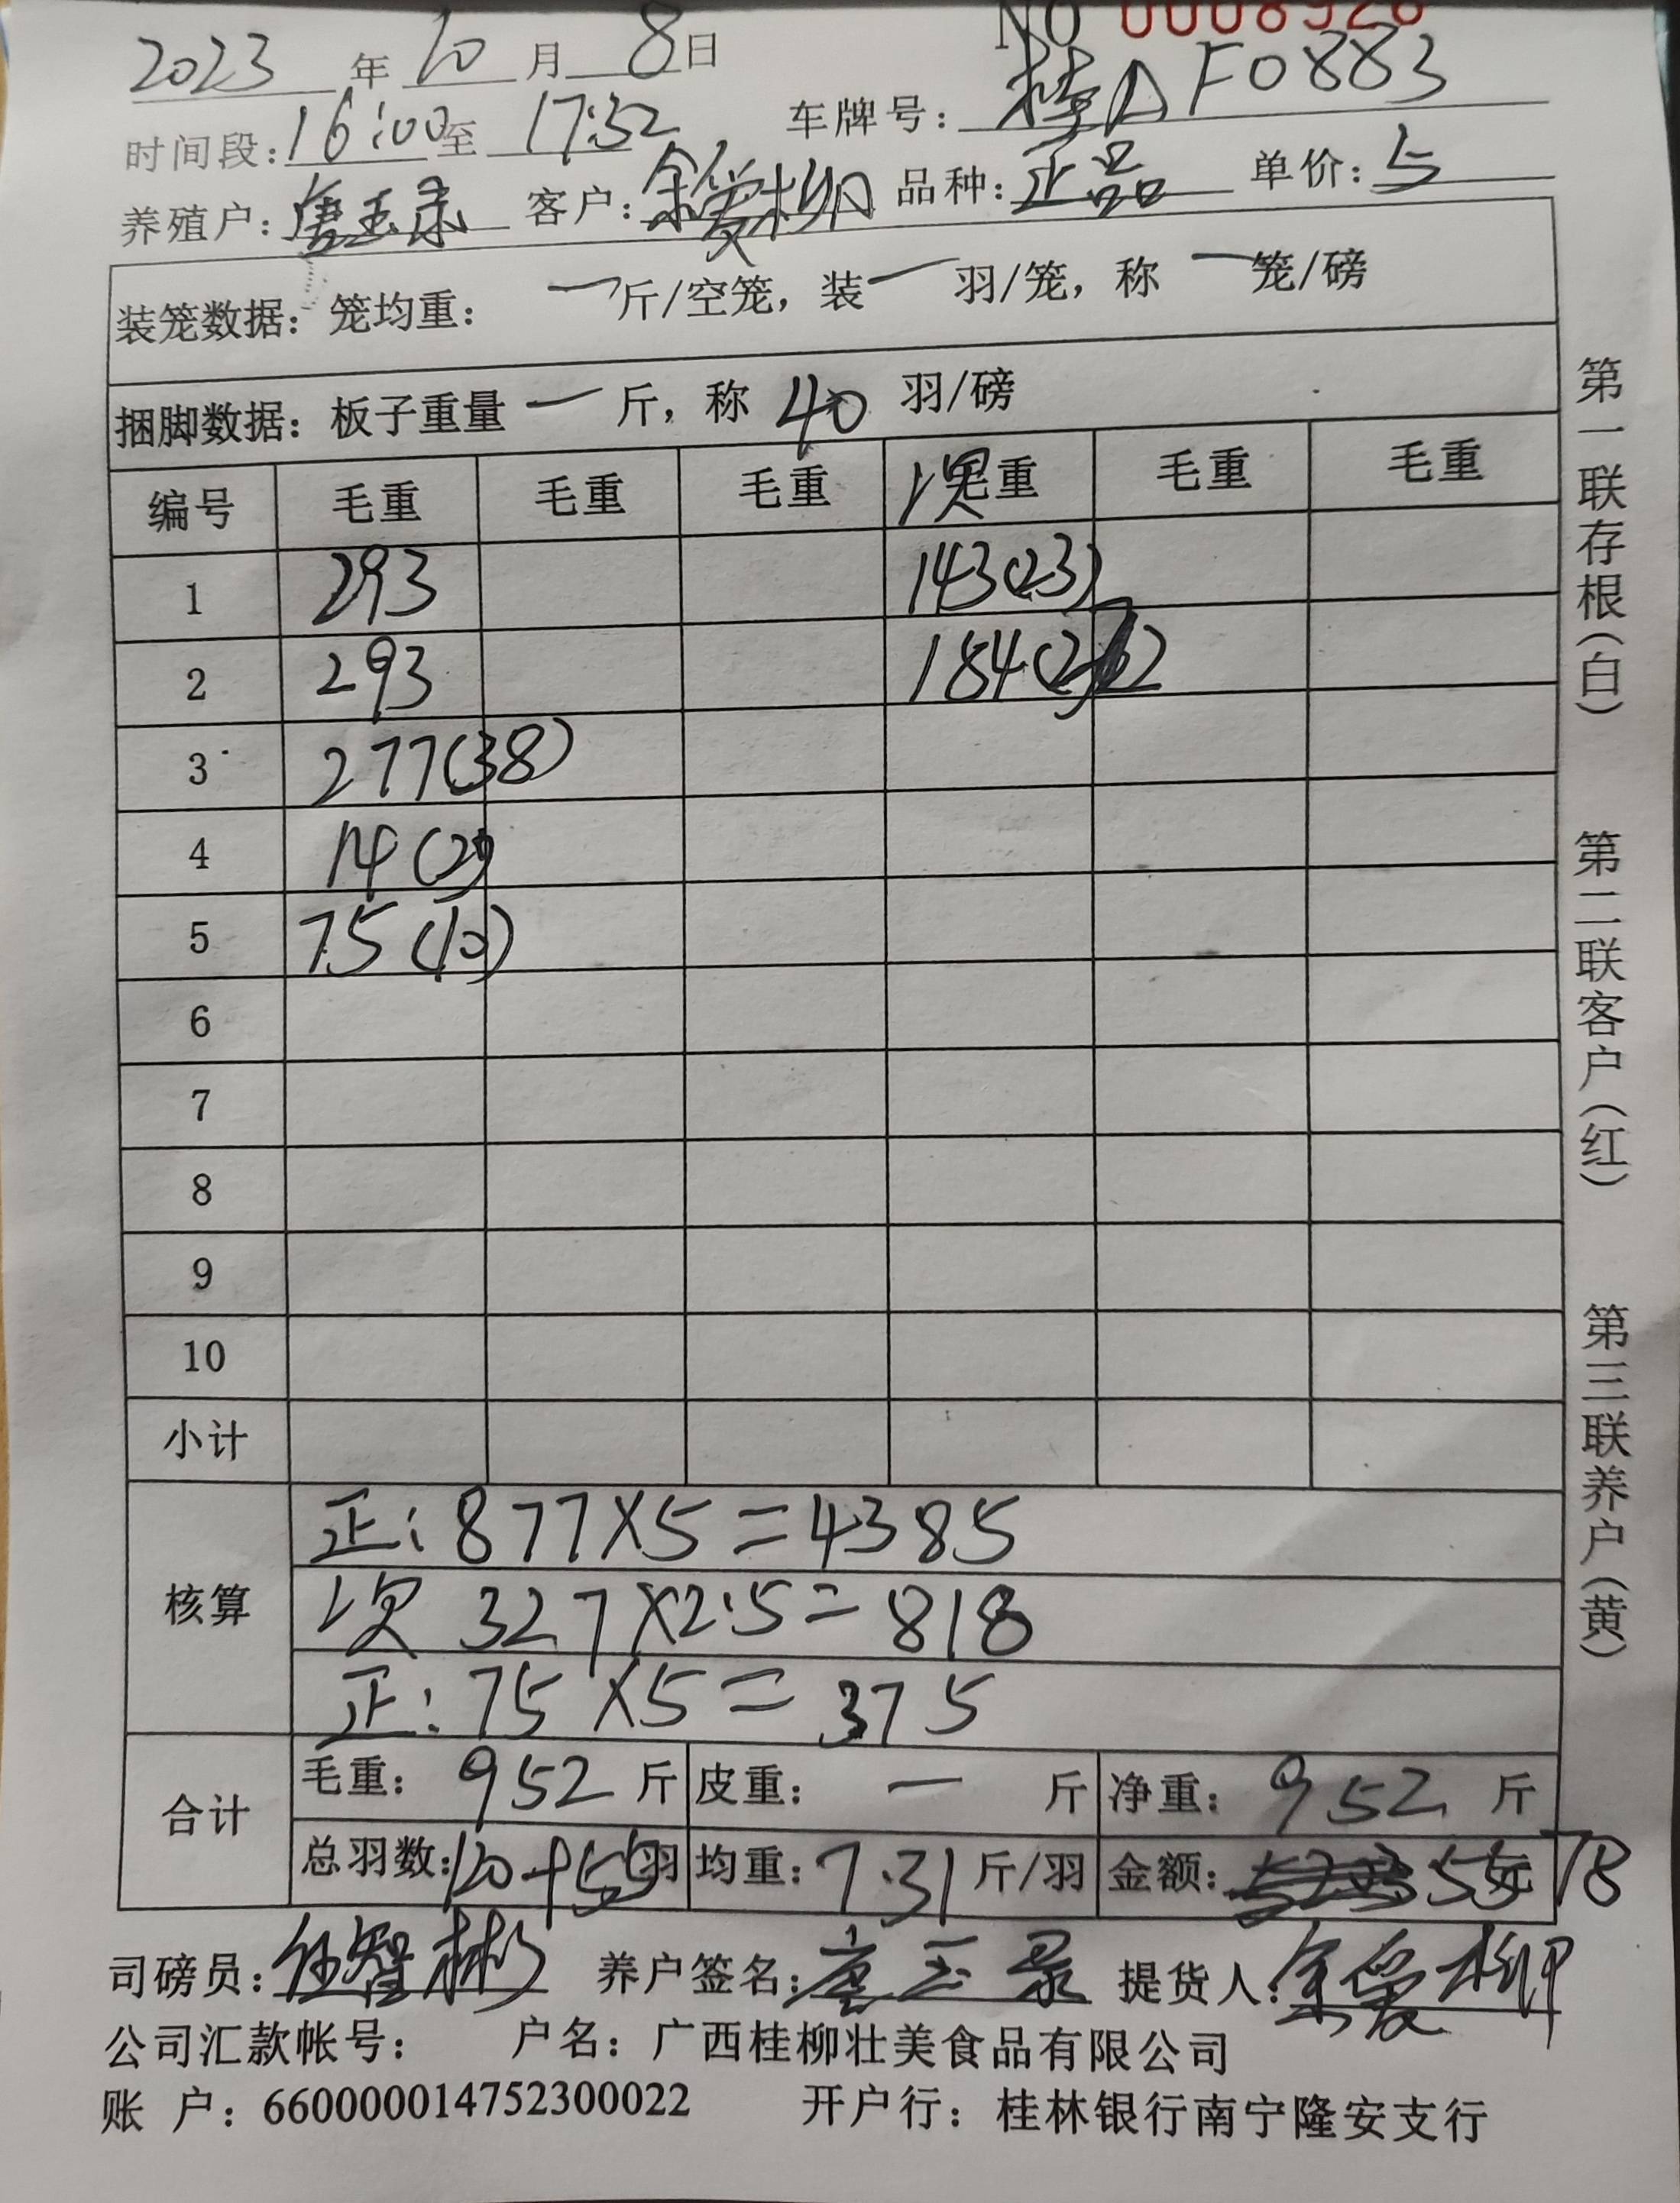 NO 0008926
2023年10月8日
时间段:16:00至17:32 车牌号:桂AF0883
养殖户:唐玉录 客户:余爱柳 品种:正品 单价:5
装笼数据:笼均重: 一斤/空笼,装一羽/笼,称一笼/磅
捆脚数据:板子重量一斤,称40羽/磅
编号 毛重 毛重 毛重 次毛重 毛重 毛重
1 293 143(23)
2 293 184
3 277(38)
4 14(2)
5 75(10)
6
7
8
9
10
小计
核算 正:877×5=4385
次 327×2.5=818
正:75×5=375
合计 毛重:952斤 皮重:一斤 净重:952斤
总羽数:120+55羽 均重:7.31斤/羽 金额:5578
司磅员:任智彬 养户签名:唐玉录 提货人:余爱柳
公司汇款帐号: 户名:广西桂柳壮美食品有限公司
账 户:660000014752300022 开户行:桂林银行南宁隆安支行
第一联存根(白) 第二联客户(红) 第三联养户(黄)